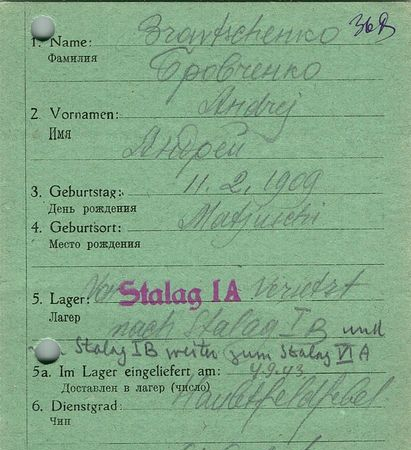 36B
1. Name: Browtschenko
Фамилия Бровченко
2. Vornamen: Andrej
Имя Андрей
3. Geburtstag: 11. 2. 1909
День рождения
4. Geburtsort: Matjuschi
Место рождения
5. Lager: Von Stalag IA Versetzt
Лагер nach Stalag I B und
Stalag IB weiter zum Stalag VI A
5a. Im Lager eingeliefert am: 4.9.43.
Доставлен в лагер (число)
6. Dienstgrad:
Чин